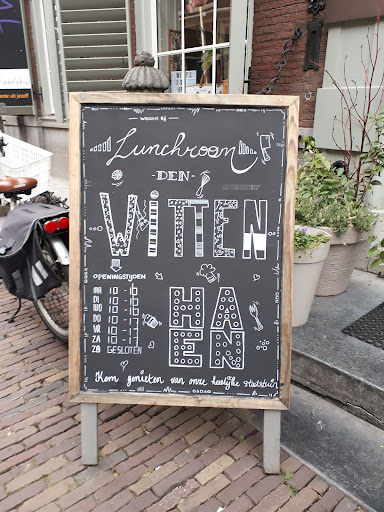 WELKOM BIJ
Lunchroom
-DEN-
WITTEN
HAEN
OPENINGSTIJDEN
MA 10-17
DI 10-17
WO 10-17
DO 10-17
VR 10-17
ZA 10-17
ZO GESLOTEN
Kom genieten van onze heerlijke stadstuin